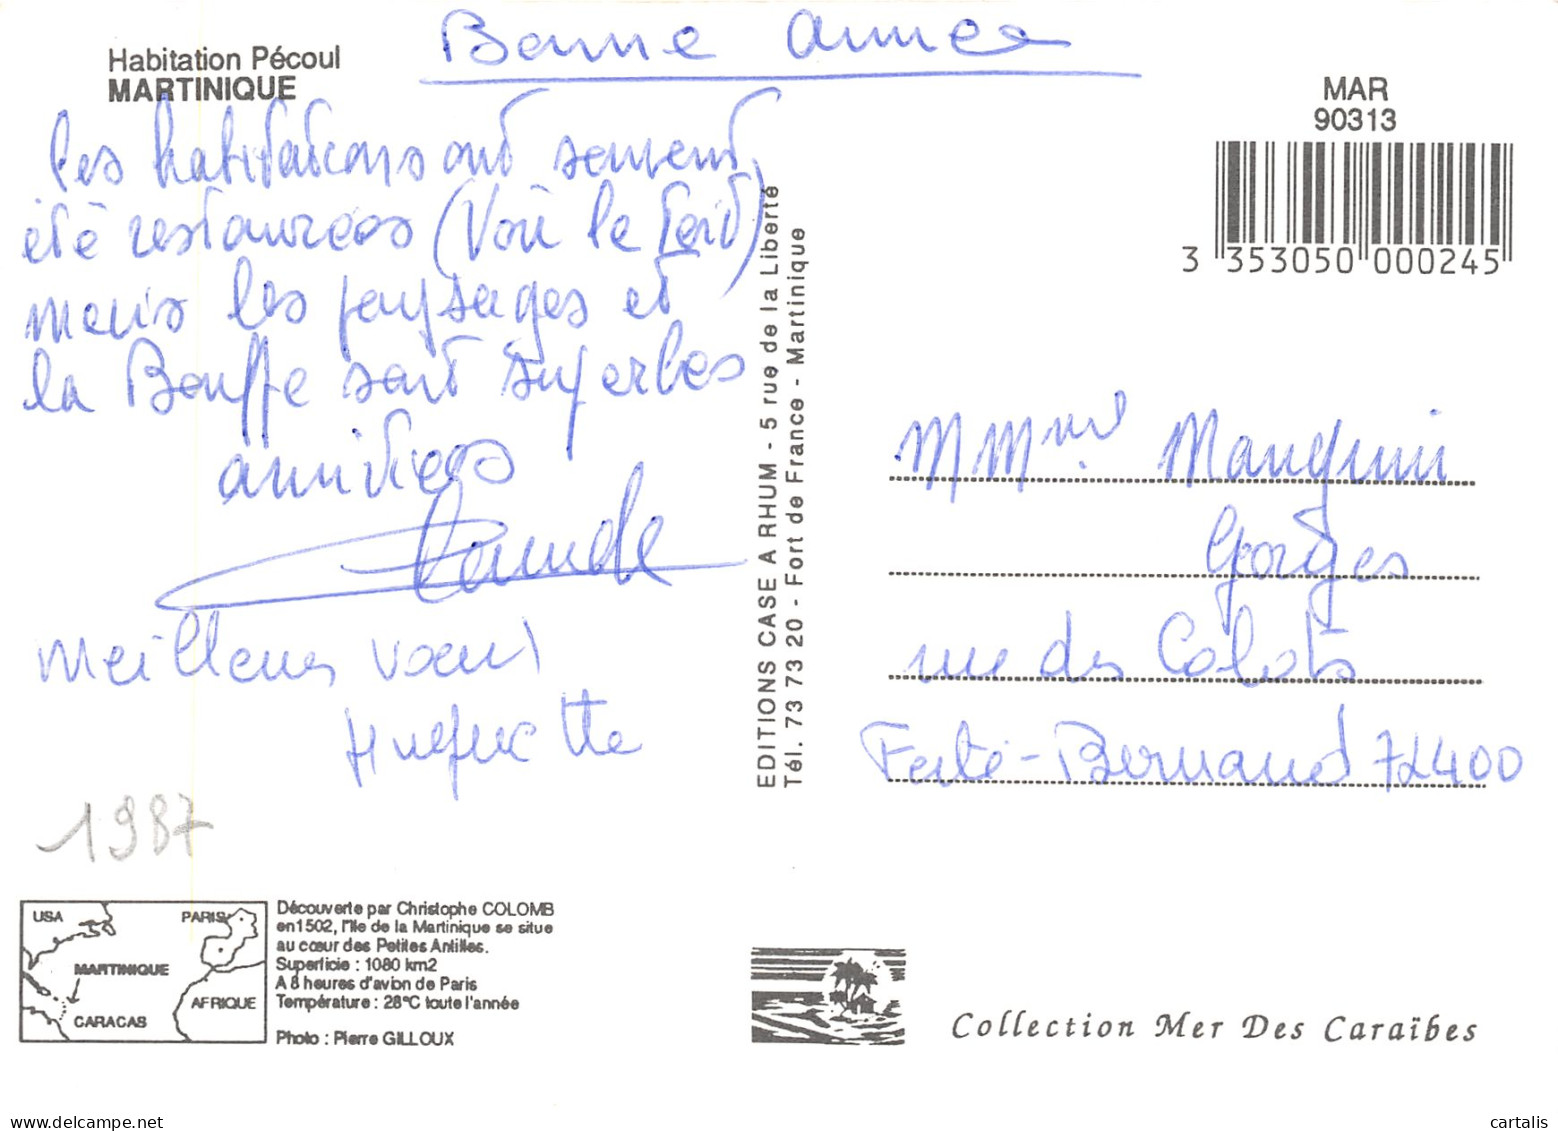 Bonne année
Habitation Pécoul
MARTINIQUE
les habitations ont souvent
été restaurées (Voir le toit)
mais les paysages et
la Bouffe sont superbes
amitiés
Claude
Meilleurs voeux
Huguette
1987
EDITIONS CASE A RHUM - 5 rue de la Liberté
Tél. 73 73 20 - Fort de France - Martinique
MAR
90313
3 353050 000245
M Mme Manguin
Georges
rue des Calots
Ferté-Bernard 72400
USA
PARIS
MARTINIQUE
AFRIQUE
CARACAS
Découverte par Christophe COLOMB
en1502, l'île de la Martinique se situe
au cœur des Petites Antilles.
Superficie : 1080 km2
A 8 heures d'avion de Paris
Température : 28°C toute l'année
Photo : Pierre GILLOUX
Collection Mer Des Caraïbes
cartalis